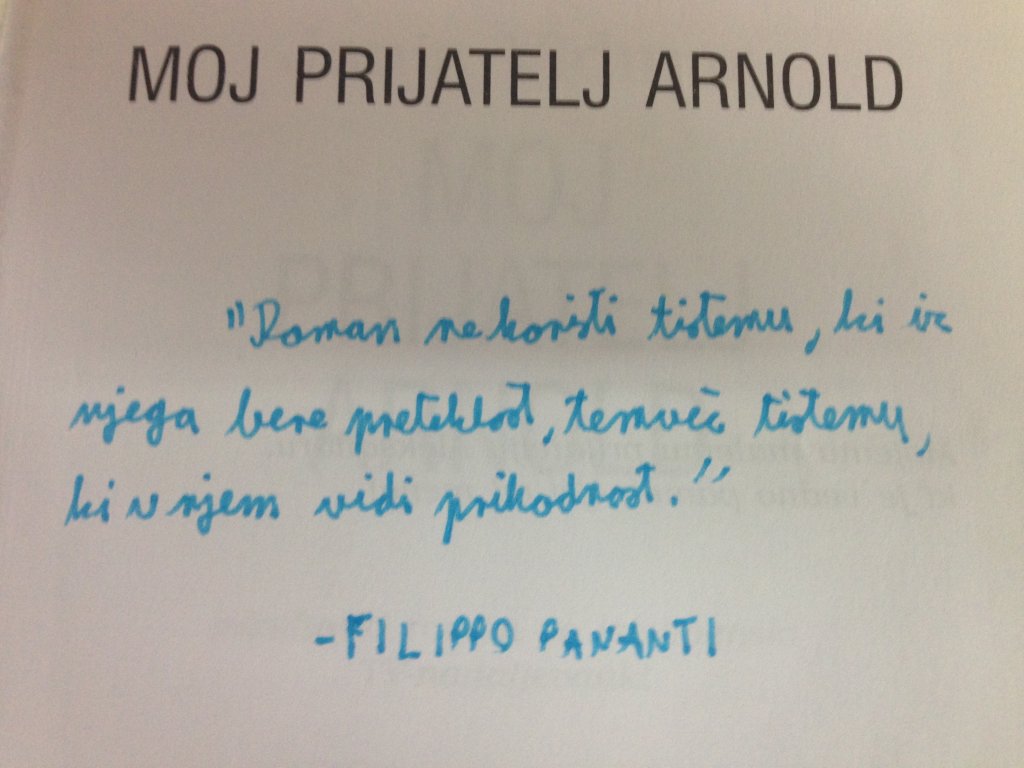 MOJ PRIJATELJ ARNOLD
"Roman ne koristi tistemu, ki iz
njega bere preteklost, temveč tistemu,
ki v njem vidi prihodnost."
-FILIPPO PANANTI